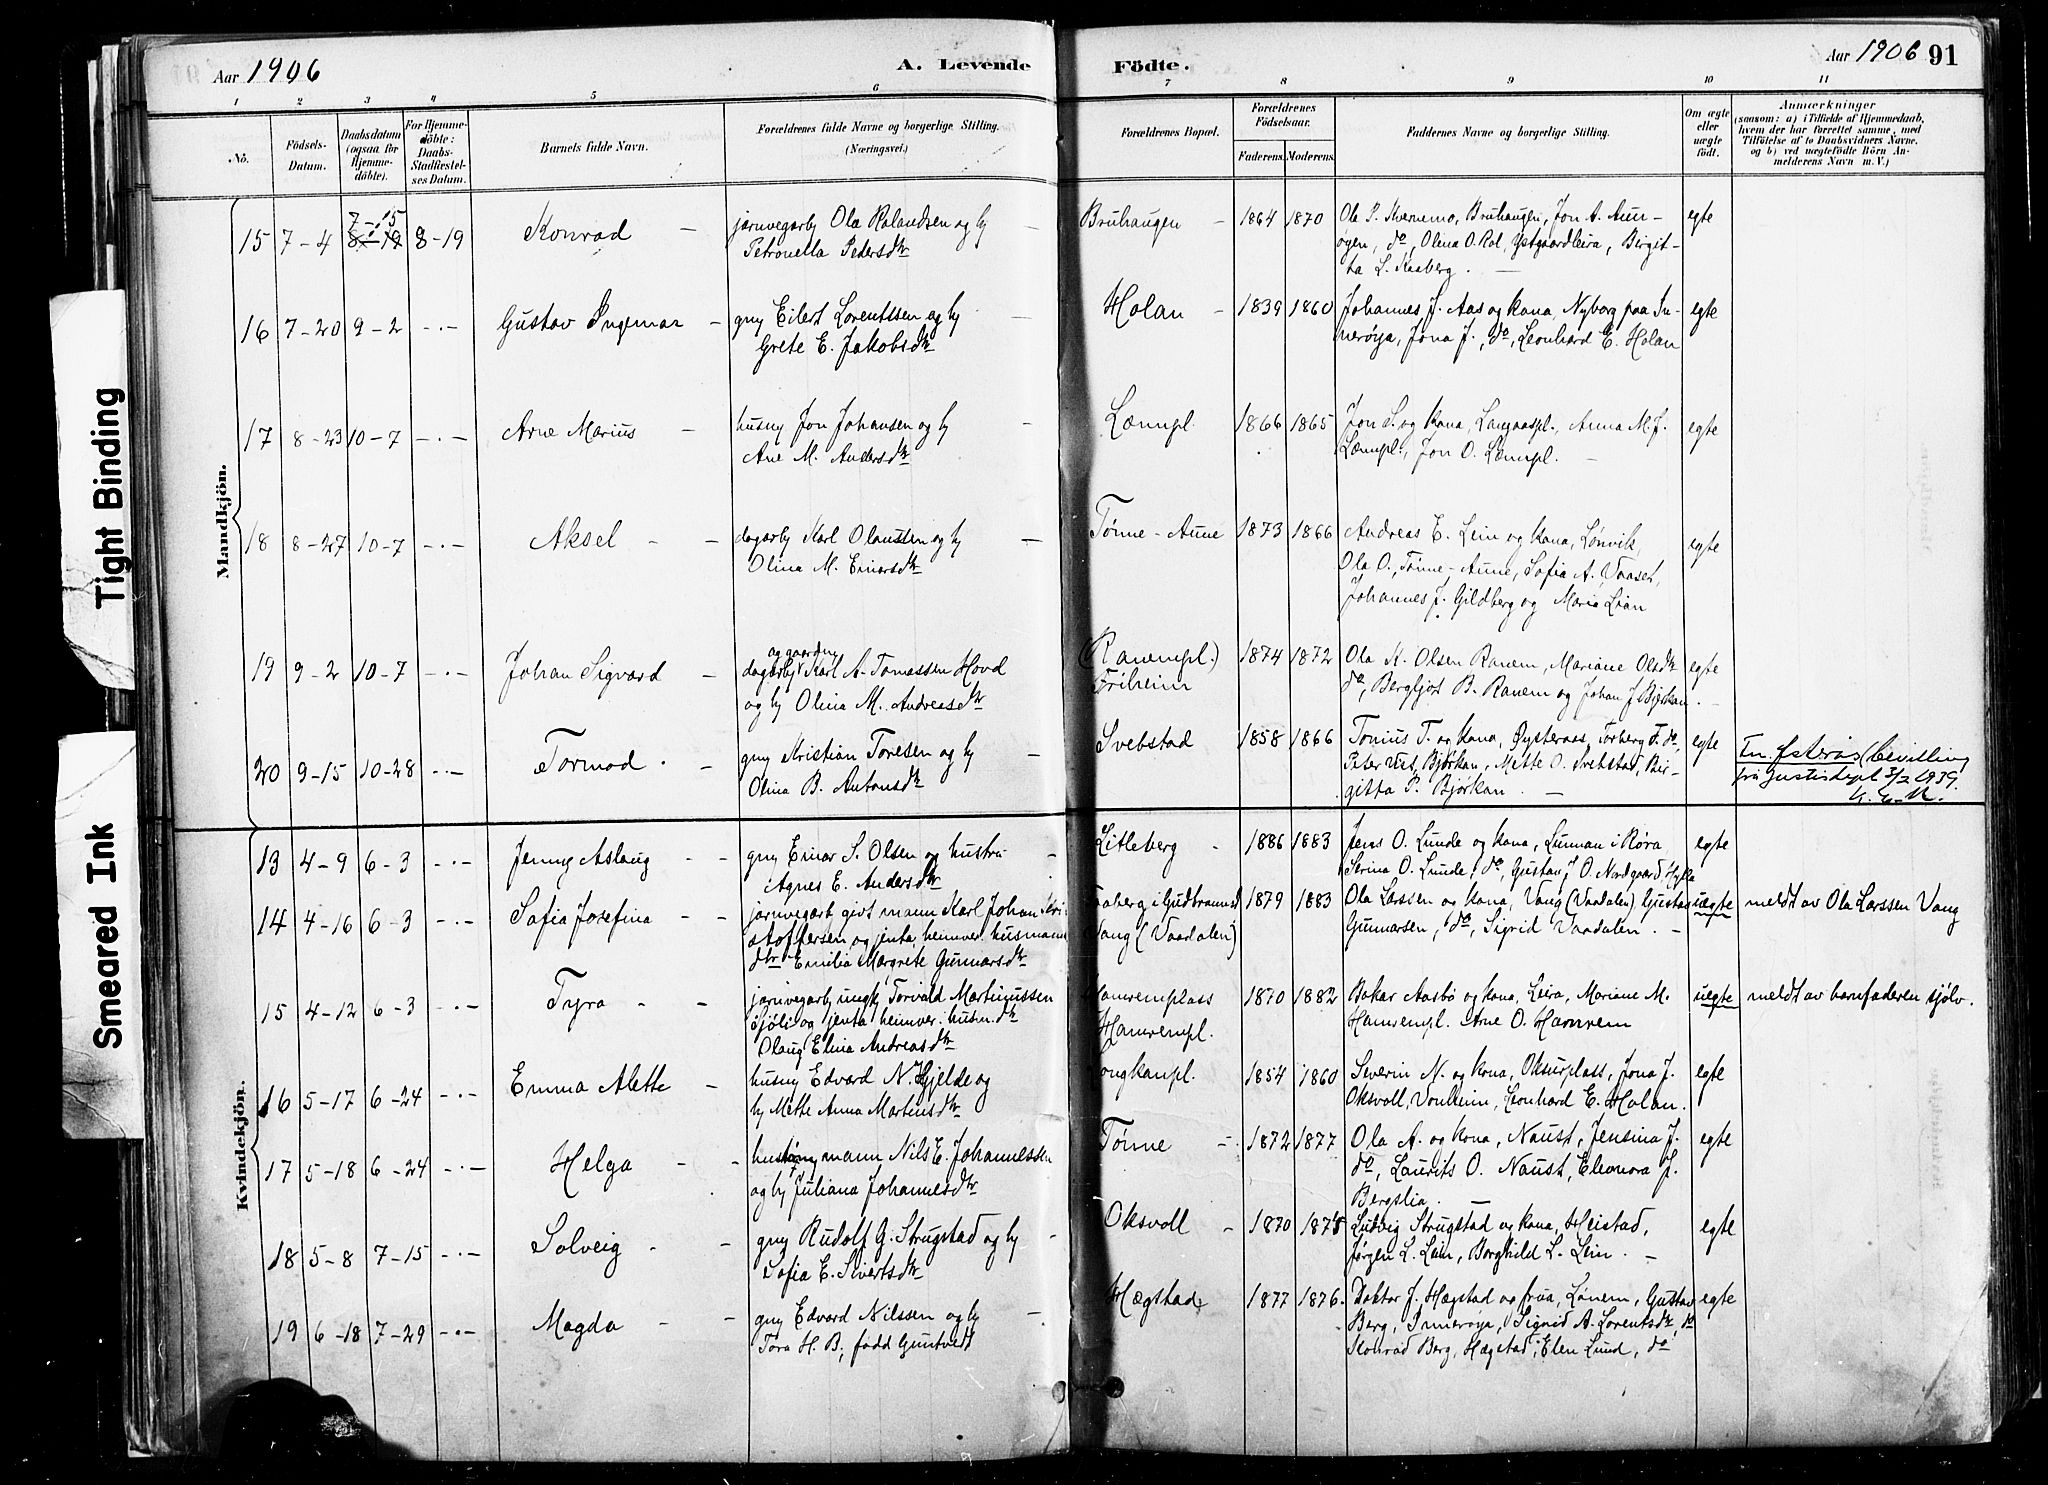 Aar 1906
A. Levende
Födte.
Aar 1906 91
1 2 3 4 5 6 7 8 9 10 11
No.
Födsels-
Datum.
Daabsdatum
(ogsaa for
Hjemme-
döbte).
For Hjemme-
döbte:
Daabs-
Stadfæstel-
ses Datum.
Barnets fulde Navn.
Forældrenes fulde Navne og borgerlige Stilling.
(Næringsvei.)
Forældrenes Bopæl.
Forældrenes
Födselsaar.
Faderens. Moderens.
Faddernes Navne og borgerlige Stilling.
Om ægte
eller
uægte
födt.
Anmærkninger
(saasom: a) i Tilfælde af Hjemmedaab,
hvem der har forrettet samme, med
Tilföielse af to Daabsvidners Navne,
og b) ved uægtefödte Börn An-
melderens Navn m. V.)
Tight Binding
Smeared Ink
Mandkjön.
15 7-4 7-15 8-19 8-19 Konrad – jarnvegarb Ola Rolandsen og hy
Petronella Pedersdtr
Bruhaugen – 1864 1870 Ola P. Kvernmo, Bruhaugen, Jon A. Aun-
øgen, do, Olina O. Rol, Ystgaardleira, Birgit-
ta L. Kasberg. – egte
16 7-20 9-2 -.- Gustav Ingemar – gmy Eilert Lorentssen og hy
Grete E. Jakobsdtr
Holan – 1839 1860 Johannes J. Aas og kona, Nyborg paa In-
nerøya, Jona J., do, Leonhard E. Holan egte
17 8-23 10-7 -.- Arne Marius – husmy Jon Johansen og hy
Ane M. Andersdtr
Læmpl. 1866 1865 Jon S. og kona, Langaaspl., Anna M. J.
Læmpl., Jon O. Læmpl. – egte
18 8-27 10-7 -.- Aksel – dagarby Karl Olaussen og hy
Olina M. Einarsdtr
Tønne-Aune 1873 1866 Andreas E. Lein og kona, Lønvik,
Ola O., Tønne-Aune, Sofia A. Vaaset,
Johannes J. Gildberg og Maria Lian egte
19 9-2 10-7 -.- Johan Sigvard – og gaardmy
dagarby Karl A. Tomassen Hovd
og hy Olina M. Andreasdtr
(Ranempl.)
Friheim 1874 1872 Ola K. Olsen Ranem, Mariane Olsdtr
do, Bergljot B. Ranem og Johan J. Bjørkan. egte
20 9-15 10-28 -.- Tormod – gmy Kristian Toresen og hy
Olina B. Antonsdtr
Svebstad 1858 1866 Tonius T. og kona, Øysteraas, Torberg T. do,
Peter Vist, Bjørkan, Mette O. Svebstad, Bir-
gitta P. Bjørkan. – egte Østerås (bevilling
frå Justisdept. 3/2 1939.
Kvindekjön.
13 4-9 6-3 -.- Jenny Aslaug – gmy Einar S. Olsen og hustru
Agnes E. Andersdtr
Litleberg – 1886 1883 Jens O. Lunde og kona, Lunnan i Røra,
Serina O. Lunde, do, Gustav J. O. Nordgaard, Hylla egte
14 4-16 6-3 -.- Sofia Josefina – jarnvegarb gift mann Karl Johan Kri-
stoffersen og jenta heimver. husmanns
dtr Emilia Margrete Gunnarsdtr
Faaberg i Gudbrandsd
Vang (Vaadalen) 1879 1883 Ola Larssen og kona, Vang (Vaadalen) Gustav
Gunnarsen, do, Sigrid Vaadalen. – uegte meldt av Ola Larssen Vang
15 4-12 6-3 -.- Tyra – jarnvegarb ungk Torvald Martinussen
Sjøli og jenta heimver. husm.dtr
Olaug Elina Andreasdtr
Hamremplass
Hamrempl. 1870 1882 Bakar Aasbø og kona, Leira, Mariane M.
Hamrempl. Arne O. Hamrem uegte meldt av barnfaderen sjølv.
16 5-17 6-24 -.- Emma Alette – husmy Edvard N. Hjelde og
hy Mette Anna Martinsdtr
Longkanpl. 1854 1860 Severin N. og kona, Oksurplass, Jona J.
Oksvoll, Vonheim, Leonhard E. Holan. egte
17 5-18 6-24 -.- Helga – mann Nils E. Johannessen
og hy Juliana Johannesdtr
Tønne – 1872 1877 Ola A. og kona, Naust, Jensina J.
do, Laurits O. Naust, Eleonora J.
Bergslia. – egte
18 5-8 7-15 -.- Solveig – gmy Rudolf G. Strugstad og hy
Sofia E. Sivertsdtr
Oksvoll – 1870 1875 Ludvig Strugstad og kona, Heistad,
Jørgen L. Lein, Borghild L. Lein. – egte
19 6-18 7-29 -.- Magda – gmy Edvard Nilssen og hy
Tora H. B., fødd Guntvedt
Hægstad 1877 1876. Doktor J. Hægstad og frua, Lønem, Gustav
Berg, Innerøya, Sigrid A. Lorentsdtr, do
Konrad Berg, Hægstad, Elen Lund, do egte